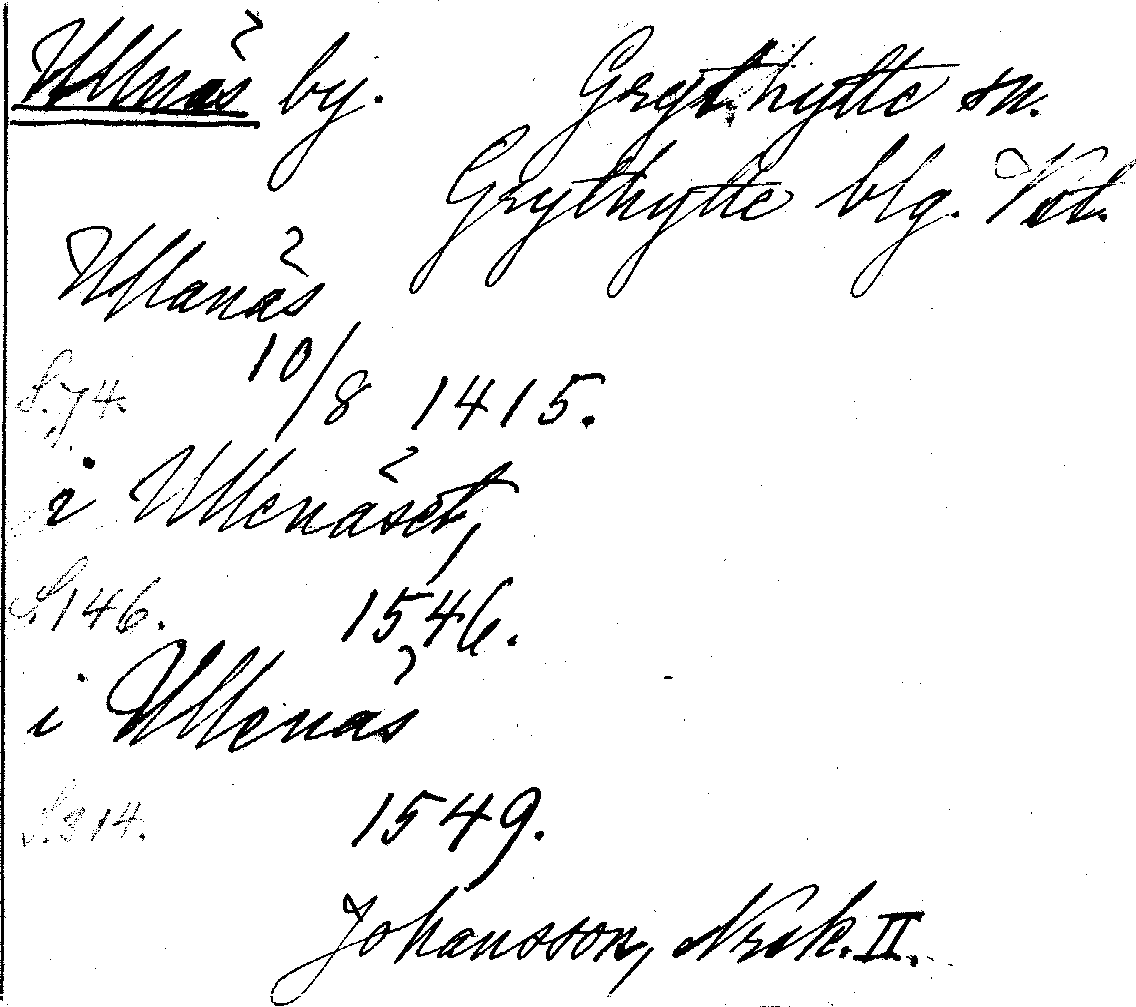 Ullnäs by. Grythytte sn.
Grythytte blg. Vstl.
Ullanäs
S. 74. 10/8 1415.
i Ullenäset,
S. 146. 1546.
i Ullenäs
S. 314. 1549.
Johansson, Nrsk. II.